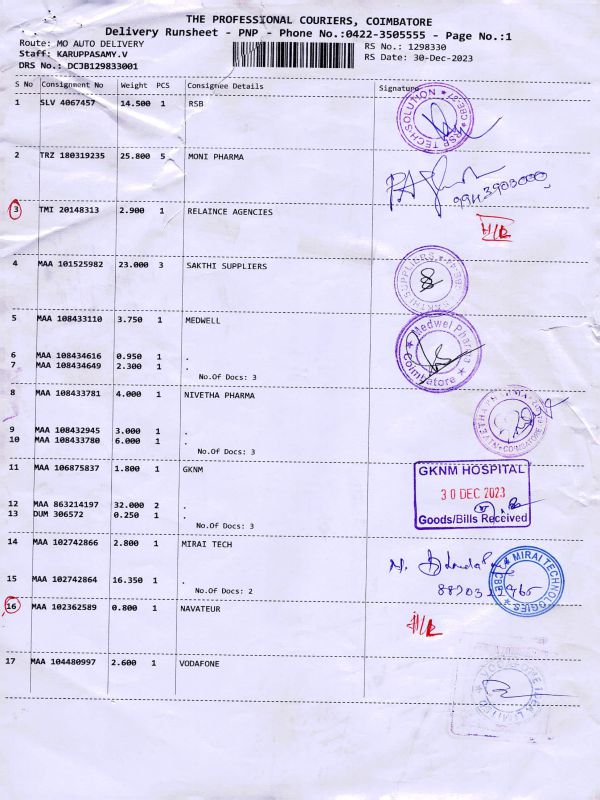 THE PROFESSIONAL COURIERS, COIMBATORE
Delivery Runsheet - PNP - Phone No.:0422-3505555 - Page No.:1
Route: MO AUTO DELIVERY RS No.: 1298330
Staff: KARUPPASAMY.V RS Date: 30-Dec-2023
DRS No.: DCJB129833001
S No Consignment No Weight PCS Consignee Details Signature
1 SLV 4067457 14.500 1 RSB
RSB TECH-SOLUTION ★ CBE-37 ★
2 TRZ 180319235 25.800 5 MONI PHARMA
3 TMI 20148313 2.900 1 RELAINCE AGENCIES
4 MAA 101525982 23.000 3 SAKTHI SUPPLIERS
SAKTHI SUPPLIERS
5 MAA 108433110 3.750 1 MEDWELL
6 MAA 108434616 0.950 1 .
7 MAA 108434649 2.300 1 .
No.Of Docs: 3
Medwel Pharma ★ Coimbatore ★
8 MAA 108433781 4.000 1 NIVETHA PHARMA
9 MAA 108432945 3.000 1 .
10 MAA 108433780 6.000 1 .
No.Of Docs: 3
11 MAA 106875837 1.800 1 GKNM
12 MAA 863214197 32.000 2 .
13 DUM 306572 0.250 1 .
No.Of Docs: 3
GKNM HOSPITAL
30 DEC 2023
Goods/Bills Received
14 MAA 102742866 2.800 1 MIRAI TECH
15 MAA 102742864 16.350 1 .
No.Of Docs: 2
★ MIRAI TECHNOLOGIES ★ CBE
16 MAA 102362589 0.800 1 NAVATEUR
17 MAA 104480997 2.600 1 VODAFONE